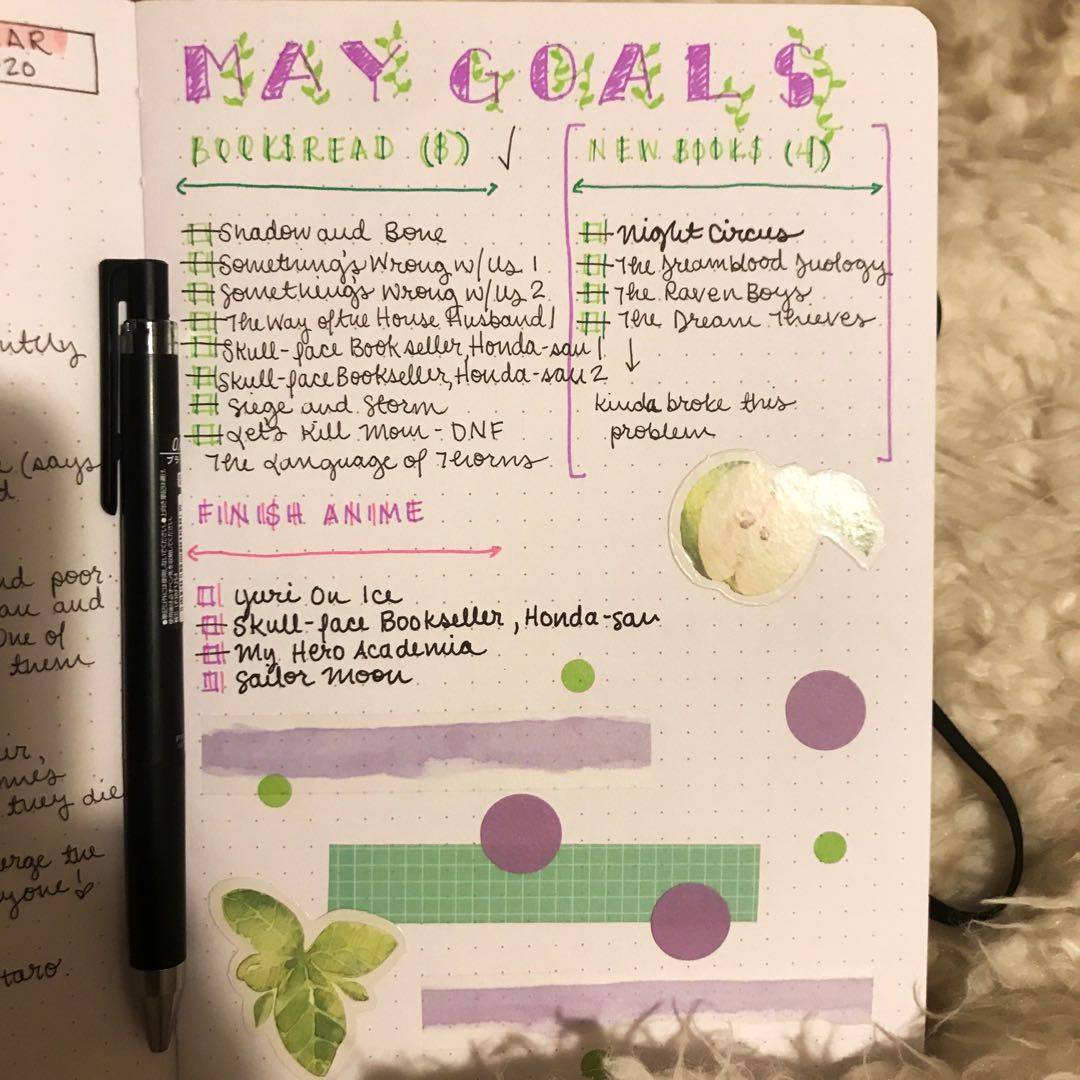 AR
20
MAY GOALS
BOOKS READ (8) ✓
Shadow and Bone
Something's Wrong w/us 1
Something's Wrong w/us 2
The Way of the House Husband 1
Skull-face Bookseller, Honda-san 1
Skull-face Bookseller, Honda-san 2
Siege and Storm
Let's Kill Mom - DNF
The Language of Thorns
NEW BOOKS (4)
Night Circus
The Dreamblood Duology
The Raven Boys
The Dream Thieves
kinda broke this
problem
FINISH ANIME
Yuri On Ice
Skull-face Bookseller, Honda-san
My Hero Academia
Sailor Moon
(says
d
nd poor
and
One of
them
they die
the
yone!
taro.